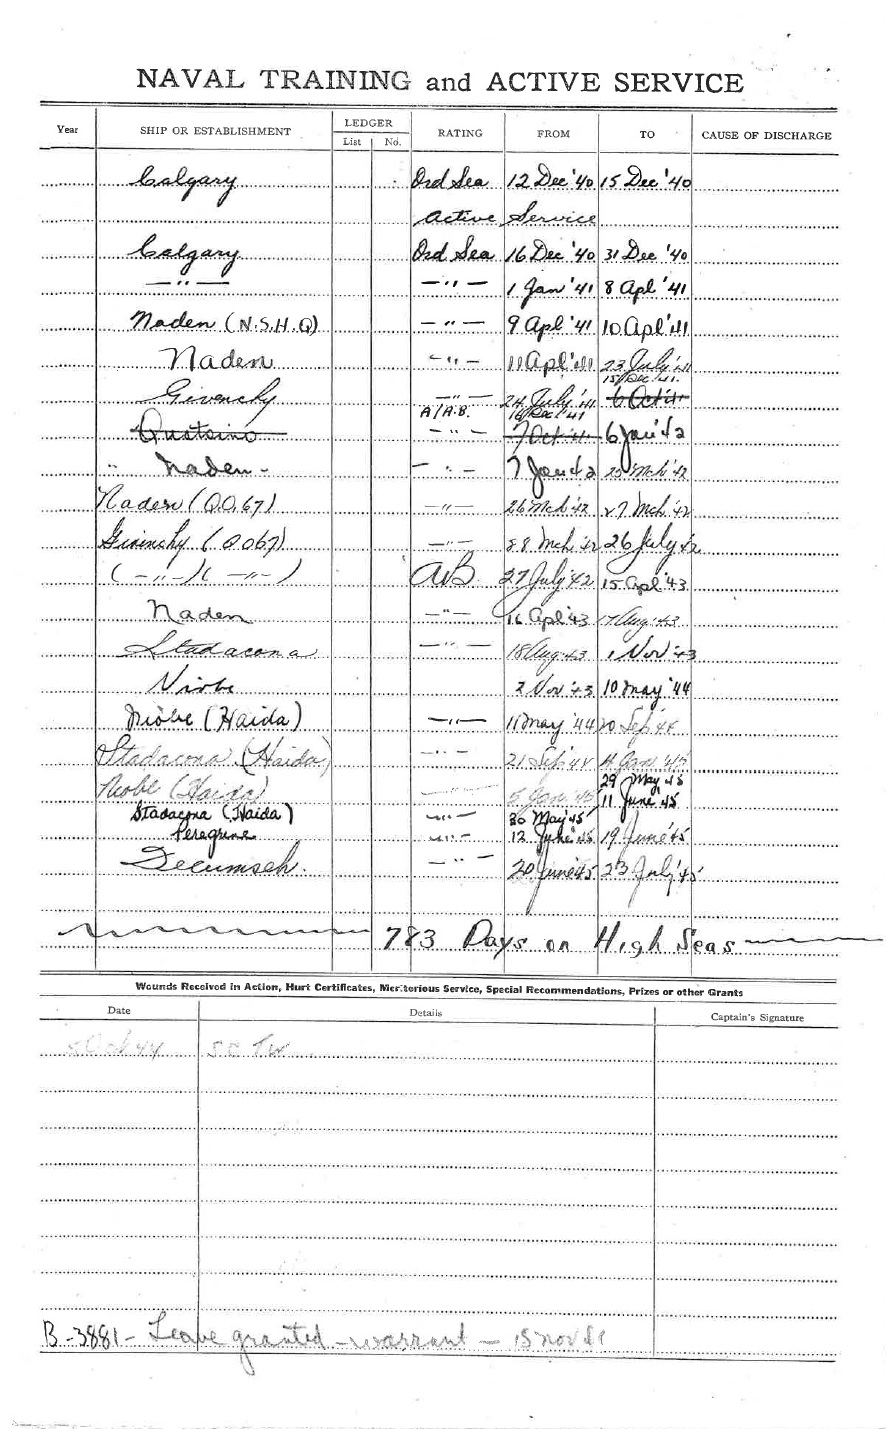 NAVAL TRAINING and ACTIVE SERVICE
Year SHIP OR ESTABLISHMENT LEDGER RATING FROM TO CAUSE OF DISCHARGE
List No.
Calgary Ord Sea 12 Dec '40 15 Dec '40
Active Service
Calgary Ord Sea 16 Dec '40 31 Dec '40
—"— —"— 1 Jan '41 8 Apl '41
Naden (N.S.H.Q) —"— 9 Apl '41 10 Apl '41
Naden —"— 11 Apl '41 23 July '41
15 Dec '41.
Givenchy —"— 24 July '41 6 Oct 41
A/A.B. 16 Dec '41
Quatsino —"— 7 Oct 41 6 Jan '42
" Naden - —"— 7 Jan 42 25 Mch '42
Naden (0067) —"— 26 Mch '42 27 Mch '42
Givenchy (0067) —"— 28 Mch '42 26 July '42
(—"—)(—"—) AB 27 July '42 15 Apl '43
Naden —"— 16 Apl '43 17 Aug '43
Stadacona —"— 18 Aug 43 1 Nov '43
Niobe 2 Nov '43 10 May '44
Niobe (Haida) —"— 11 May '44 20 Sep '44
Stadacona (Haida) —"— 21 Sep '44 4 Jan '45
29 May 45
Niobe (Haida) —"— 5 Jan '45 11 June '45
Stadacona (Haida) —"— 30 May '45
Peregrine —"— 12 June '45 19 June '45
Tecumseh. —"— 20 June '45 23 July '45
783 Days on High Seas
Wounds Received in Action, Hurt Certificates, Meritorious Service, Special Recommendations, Prizes or other Grants
Date Details Captain's Signature
Oct 44
B-3881- Leave granted - warrant - 15 Nov